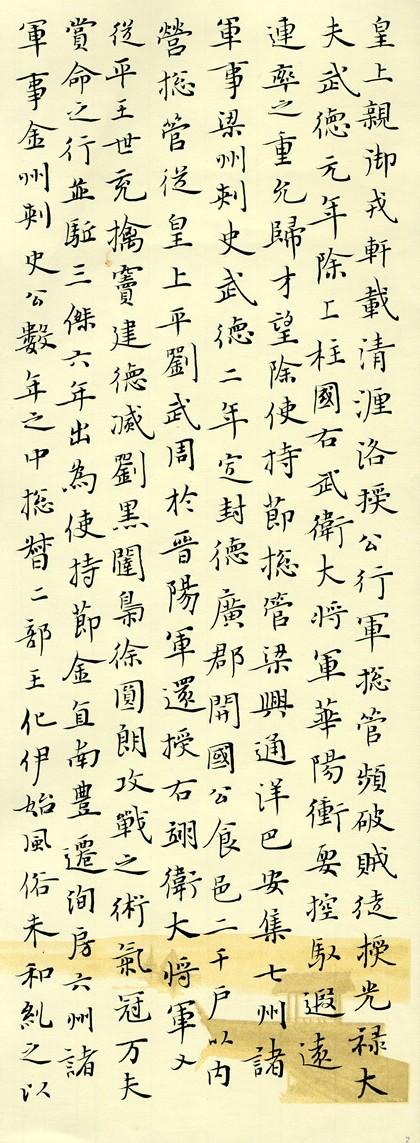 皇上親御戎軒載清瀍洛授公行軍揔管頻破賊徒授光禄大
夫武德元年除上柱國右武衛大将軍華陽衝要控馭遐遠
連率之重允歸才望除使持節揔管梁興通洋巴安集七州諸
軍事梁州刺史武德二年定封德廣郡開國公食邑二千戶以内
營揔管從皇上平劉武周於晉陽軍還授右翊衛大将軍又
從平王世充擒竇建德滅劉黑闥梟徐圓朗攻戰之術氣冠万夫
賞命之行並駈三傑六年出為使持節金直南豊遷洵房六州諸
軍事金州刺史公數年之中揔督二部王化伊始風俗未和糺之以